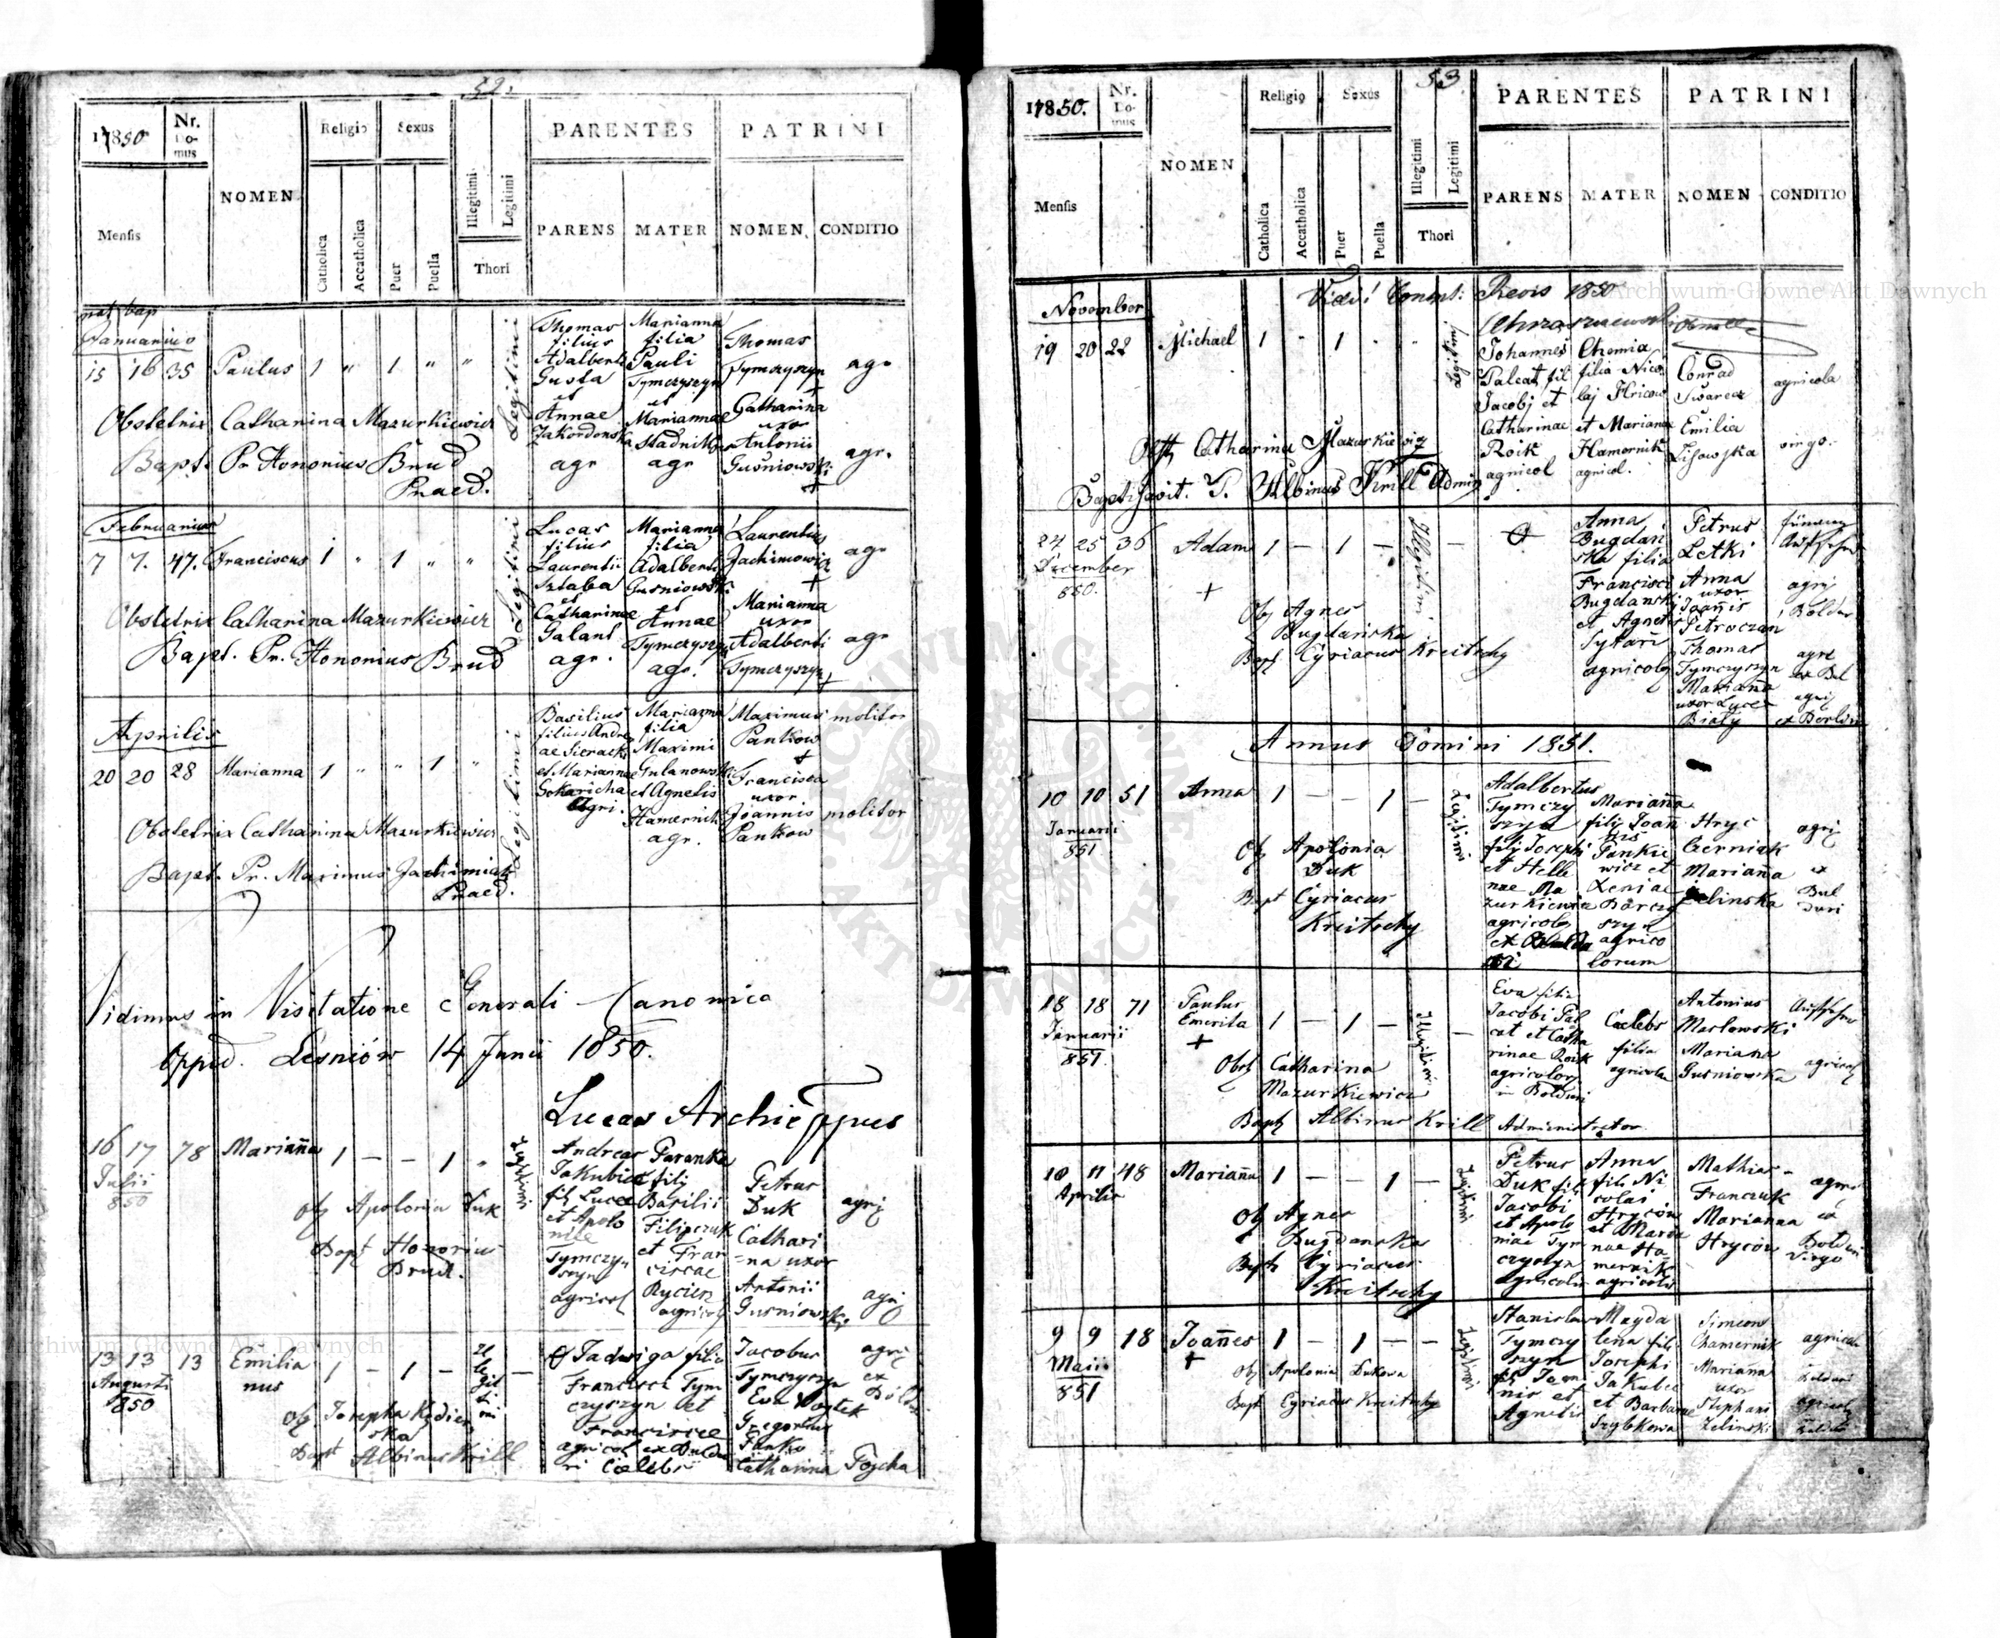 52.
17850
Nr. Domus
NOMEN
Religio
Sexus
Illegitimi
Legitimi
PARENTES
PATRINI
Mensis
Catholica
Accatholica
Puer
Puella
Thori
PARENS
MATER
NOMEN
CONDITIO
nat bap
Januarius
15 16 35 Paulus 1 " 1 " "
Legitimi
Thomas
filius
Adalberti
Gusta
et
Annae
Zakordonska
agr
Marianna
filia
Pauli
Tymczyszyn
et
Mariannae
Stadnik
agr
Thomas
Tymczyszyn
+
Catharina
uxor
Antonii
Guśniowski
+
agr
agr.
Obstetrix Catharina Mazurkiewicz
Bapt. Pr. Hononius Brud
Praed.
Februarius
7 7. 47. Franciscus 1 " 1 " "
Legitimi
Lucas
filius
Laurentii
Sztaba
et
Catharinae
Galant
agr.
Marianna
filia
Adalberti
Gusniowski
et
Annae
Tymczyszyn
agr.
Laurentius
Jachimowicz
+
Marianna
uxor
Adalberti
Tymczyszyn
+
agr
agr
Obstetrix Catharina Mazurkiewicz
Bapt. Pr. Hononius Brud
Aprilis
20 20 28 Marianna 1 " " 1 "
Legitimi
Basilius
filius Andre
ae Sieracki
et Mariannae
Gokaricha
Agri.
Marianna
filia
Maximi
Gulanowski
et Agnetis
Hamernik
agr.
Maximus
Pankow
+
Francisca
uxor
Joannis
Pankow
molitor
molitor
Obstetrix Catharina Mazurkiewicz
Bapt. Pr. Maximus Jachimiak
Praed.
Vidimus in Visitatione Generali Canonica
Oppid. Leśniów 14 Junii 1850.
Lucas Archieppus
16 17 78 Mariañna 1 – – 1 "
Julii
850
Andreas
Jakubiec
fil Lucae
et Apolo
niae
Tymczyn
szyn
agricol
Paranka
filj
Basilii
Filipczuk
et Fran
ciscae
Rycien
agricol
Petrus
Duk
Cathari
=na uxor
Antonii
Gusniowski
agrj
agrj
Ob Apolonia Duk
Bapt Honorius
Brud.
13 13 13 Emilia
nus 1 – 1 – –
Augusti
850
Il
legit
ti
mi
Jadwiga filia
Francisci Tym
czyszyn et
Franciscae
agricol ex Boldu
ri Caelebs
Jacobus
Tymczyszyn
Eva Wojtek
Gregorius
Panko
Catharina Tojcha
agrj
ex
Ob Josepha Kędzier
ska
Bapt Albinus Krill
53
17850.
Nr. Domus
NOMEN
Religio
Sexus
Illegitimi
Legitimi
PARENTES
PATRINI
Mensis
Catholica
Accatholica
Puer
Puella
Thori
PARENS
MATER
NOMEN
CONDITIO
Vidi! Revis 1850
November
19 20 22 Michael 1 " 1 " "
Legitimi
Johannes
Palcat fil
Jacobj et
Catharinae
Roik
agricol
Chemia
filia Nico
laj Hricow
et Mariana
Hamernik
agricol.
Conrad
Swarcz
Emilia
Lisowska
agricola
virgo.
Obst Catharina Mazurkiewicz
Baptizavit P. Albinus Krill Admin
24 25 36 Adam 1 – 1 – –
December
850.
+
Illegitimi
Anna
Bugdań
ska filia
Francisci
Bugdanski
et Agnetis
Sytari
agricola
Petrus
Letki
Anna
uxor
Joañis
Petroczan
Thomas
Tymczyszyn
Mariana
uxor Lucae
Bialy
agrj
Boldur
agri
ex Bol
agrj
Ob Agnes
Bugdańska
Bapt Cyriacus Kreitschy
Annus Domini 1851.
10 10 51 Anna 1 – – 1 –
Januarii
851
Legitimi
Adalbertus
Tymczy
szyn
filj Josephi
et Hele
nae Ma
zurkiewicz
agricola
ex Boldu
ri
Mariañna
filj Joañ
nis
Pankie
wicz et
Xeniae
Barczy
szyn
agrico
lorum
Hryc
Cerniak
Mariaña
Zelinska
agrj
ex
Bol
duri
Ob Apolonia
Duk
Bapt Cyriacus
Kreitschy
18 18 71 Paulus
Emerita 1 – 1 – –
Januarii
851
+
Illegitimi
Eva filia
Jacobi Pal
cat et Catha
rinae Roik
agricolor
in Bolduri
Caelebs
filia
agricolae
Antonius
Maslowski
Mariana
Gusniowska
Aufseher
agricol
Obst Catharina
Mazurkiewicz
Bapt Albinus Krill Administrator
10 11 48 Mariañna 1 – – 1 –
Aprilis
Legitimi
Petrus
Duk fil
Jacobi
et Apolo
niae Tym
czyszyn
agricola
Anna
filia Ni
colai
Hryców
et Maria
nae Ha
mernik
agricola
Mathias
Franczuk
Marianna
Hryców
agri
ex
Bolduri
Virgo
Ob Agnes
Bugdanska
Bapt Cyriacus
Kreitschy
9 9 18 Joañes 1 – 1 – –
Maii
851
+
Legitimi
Stanislaus
Tymczy
szyn
fil Joan
nis et
Agnetis
Magda
lena fil
Josephi
Jakubec
et Barbarae
Szybkowa
Simeon
Chamernik
Mariana
uxor
Stephani
Zelinski
agricol
Bolduri
agricol
Ob Apolonia Dukowa
Bapt Cyriacus Kreitschy
Archiwum Główne Akt Dawnych
ARCHIWUM GŁÓWNE AKT DAWNYCH
Archiwum Główne Akt Dawnych